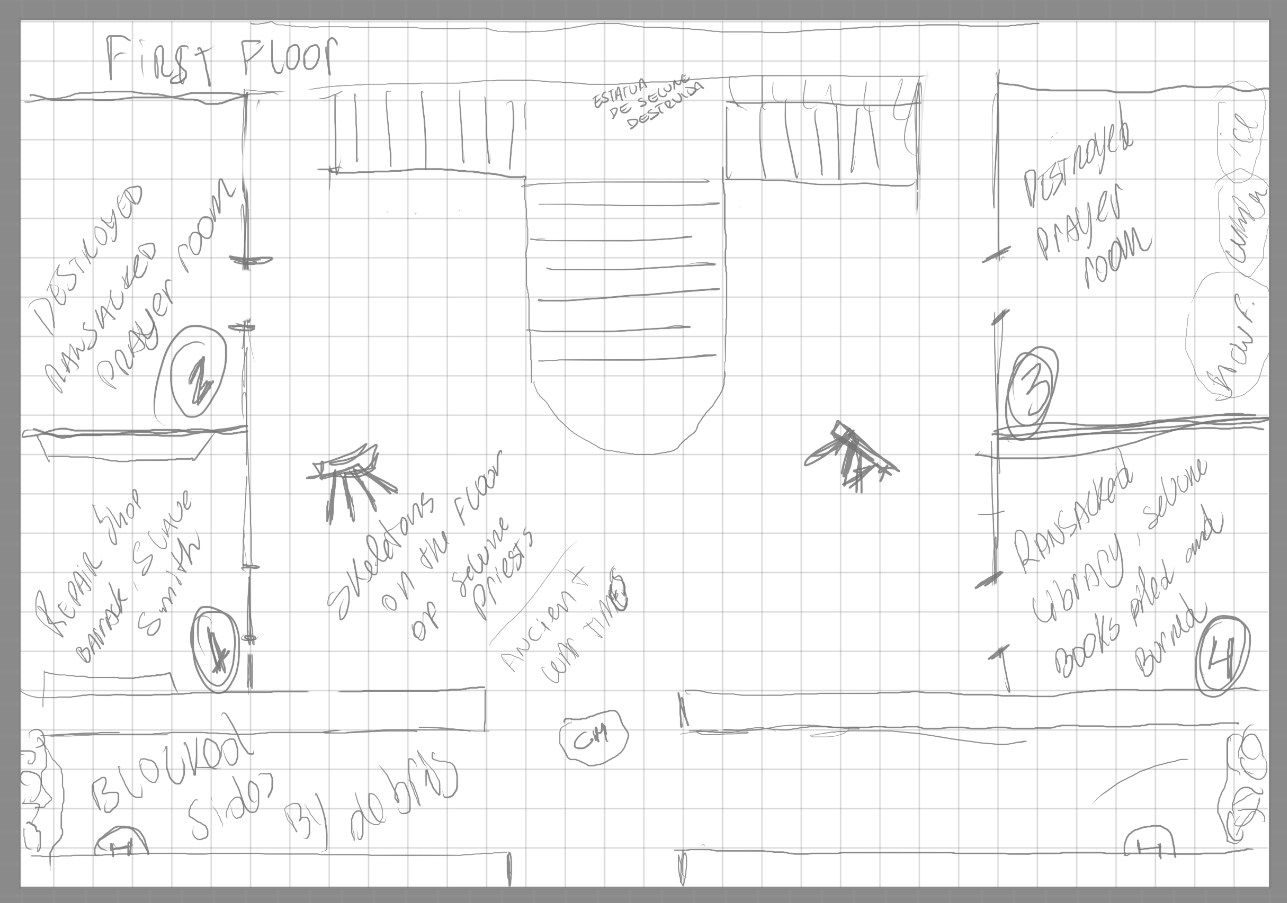 First Floor
ESTATUA
DE SELUNE
DESTRUIDA
DESTROYED
RANSACKED
PRAYER room
2
DESTROYED
PRAYER
room
ICE
3
REPAIR Shop
Smith
1
Skeletons
on the Floor
OF selune
Priests
Ancient
RANSACKED
Library, selune
Books piled and
Burned
4
CM
BLOCKED
Sides
By debris
H
H